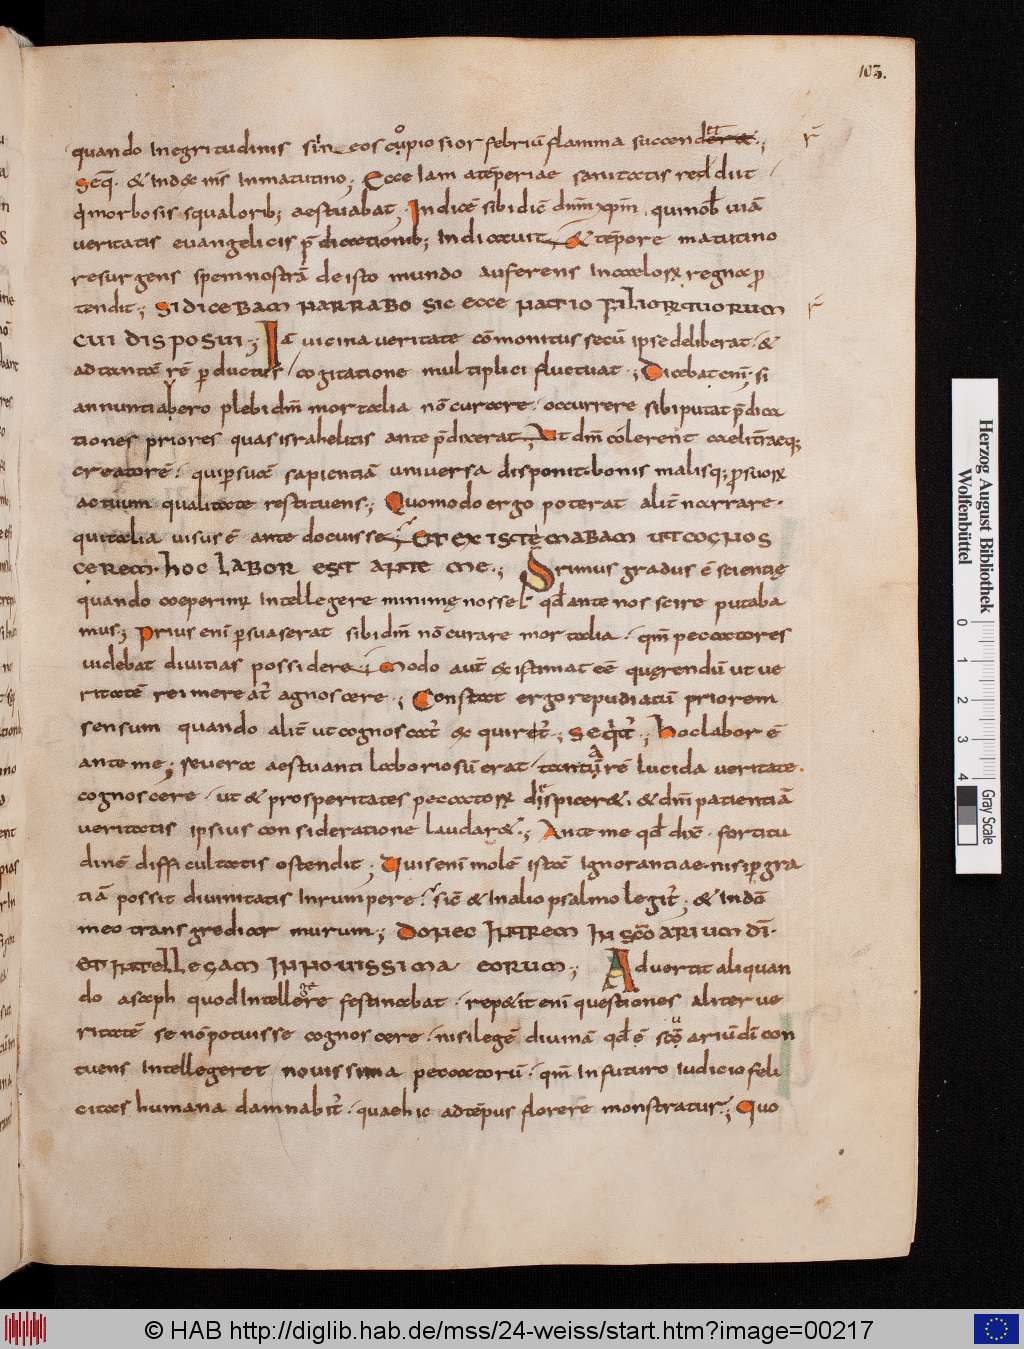 103.
quando In egritudinis sin eos cupiosior febriũ flamma succenderæ.;
Seq̃. & Index m̃s In matutino; Ecce Iam atẽperiae sanitatis reddut
q̃ morbosis squalorib; aestuabat. In dicẽ sibi dic̃ dñm xp̃m. qui nob̃ uiã
ueritatis euangelicis p̃dicationib; Indicauit. & tẽpore matutino
resurgens spem nostrã de isto mundo auferens In caeloꝝ regna p̃
tendit; SI DICEBAM NARRABO SIC ECCE NATIO FILIOR TUORUM
CUI DISPOSUI; Iã uicina ueritate cõmonitus secũ ipse deliberat. &
ad tantã rẽ p̃ductus cogitatione multiplici fluctuat.; Dicebat eni͂. si
annuntiabero plebi dm̃ mortalia nõ curare. occurrere sibi putat p̃dica
tiones priores quas israhelitis ante p̃dixerat. Ut dm̃ colerent caeli t̃raeq;
creatorẽ. qui p̃ suã sapientiã uniuersa disponit. bonis malisq; p̃ suoꝝ
actuum qualitate restituens.; Quomodo ergo poterat alit̃ narrare.
qui talia uisus ẽ ante docuisse; ET EXISTEMABAM UT COGNOS
CEREM. HOC LABOR EST ANTE ME.; Primus gradus ẽ scientię
quando coeperim; Intellegere minimę nosse qd̃ ante nos scire putaba
mus; Prius eni͂ p̃suaserat sibi dm̃ nõ curare mortalia. qm̃ peccatores
uidebat diuitias possidere; Modo aut̃ existimat eẽ querendũ ut ue
ritatẽ rei mereat̃ agnoscere.; Constat ergo repudiatũ priorem
sensum quando alit̃ ut cognoscat̃ exquiret̃.; Seq̃t̃.; Hoc labor ẽ
ante me; se uera aestuanti laboriosũ erat. tantũ rẽ lucida ueritate
cognoscere. ut & prosperitates peccatoꝝ dispiceræ. & dm̃ patientiã
ueritatis ipsius consideratione laudaræ.; Ante me qd̃ dix̃. fortitu
dinẽ difficultatis ostendit; Quis eni͂ molẽ istã Ignorantiae. nisi p̃ gra
tiã possit diuinitatis Inrumpere. sic̃ & In alio psalmo legit̃; & In dõ
meo transgrediar murum; DONEC INTREM IN SCÕARIUM DĨ.
ET INTELLEGAM IN NOUISSIMA EORUM; Aduertit aliquan
do asaph quod Intellere festinabat. repææit eni͂ questiones aliter ue
ritatẽ se nõ potuisse cognoscere. nisi legẽ diuinã qd̃ ẽ scõariũ dĩ con
tuens Intellegeret nouissima peccatorũ. qm̃ In futuro Iudicio feli
citas humana damnabit̃. quae hic ad tẽpus florere monstratur.; Quo
Herzog August Bibliothek
Wolfenbüttel
0 1 2 3 4
Gray Scale
© HAB http://diglib.hab.de/mss/24-weiss/start.htm?image=00217